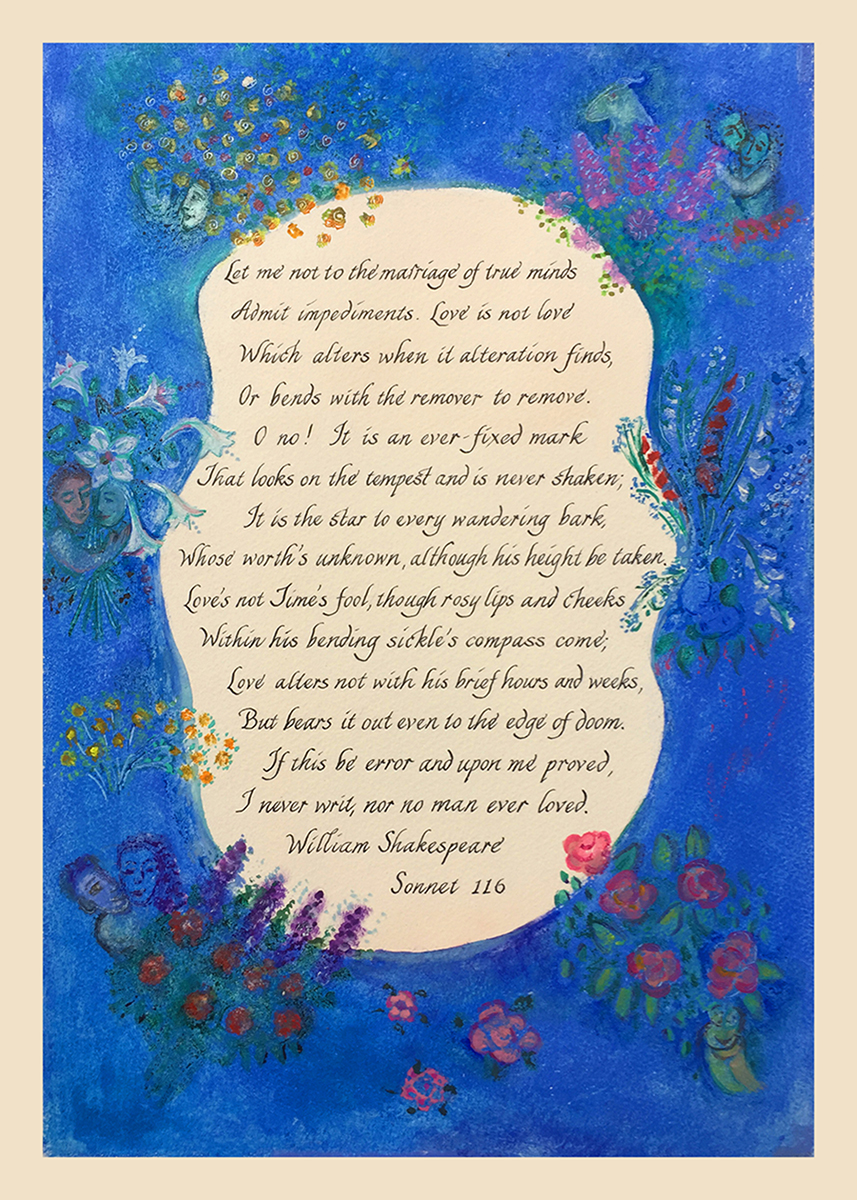 Let me not to the marriage of true minds
Admit impediments. Love is not love
Which alters when it alteration finds,
Or bends with the remover to remove.
O no! It is an ever-fixed mark
That looks on the tempest and is never shaken;
It is the star to every wandering bark,
Whose worth's unknown, although his height be taken.
Love's not Time's fool, though rosy lips and cheeks
Within his bending sickle's compass come;
Love alters not with his brief hours and weeks,
But bears it out even to the edge of doom.
If this be error and upon me proved,
I never writ, nor no man ever loved.
William Shakespeare
Sonnet 116